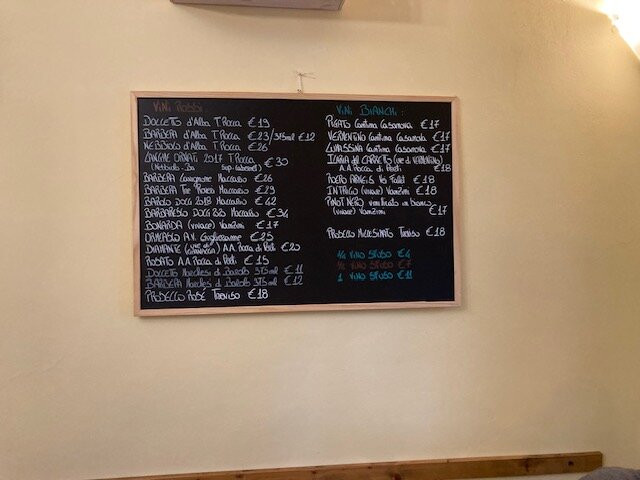 VINI ROSSI
DOLCETTO d'Alba T. Rocca €19
BARBERA d'Alba T. Rocca €23/375ml €12
NEBBIOLO d'Alba T. Rocca €26
LANGHE ORNATI 2017 T. Rocca €30
(Nebbiolo. Ba Sup.
BARBERA Maccario €26
BARBERA Tre Maccario €29
BAROLO DOCG 2018 Maccario €42
BARBARESCO DOCG 2020 Maccario €34
BONARDA (vivace) Vanzini €17
ORMEASCO A.V. Guglierame €25
DIAMANTE A.A. Rocca di €20
ROSATO A.A. Rocca di €15
DOLCETTO Marchesi di Barolo 375ml €11
BARBERA Marchesi di Barolo 375ml €12
PROSECCO ROSÉ Treviso €18
VINI BIANCHI:
PIGATO Cantina Casanova €17
VERMENTINO Cantina Casanova €17
LUMASSINA Cantina Casanova €17
del CARRETTO (uve di VERMENTINO)
A.A. Rocca di €18
ROERO ARNEIS €18
INTRIGO (vivace) Vanzini €18
PINOT NERO vinificato in bianco
(vivace) Vanzini €17
PROSECCO MILLESIMATO Treviso €18
1/4 VINO SFUSO €4
1/2 VINO SFUSO €7
1 VINO SFUSO €11